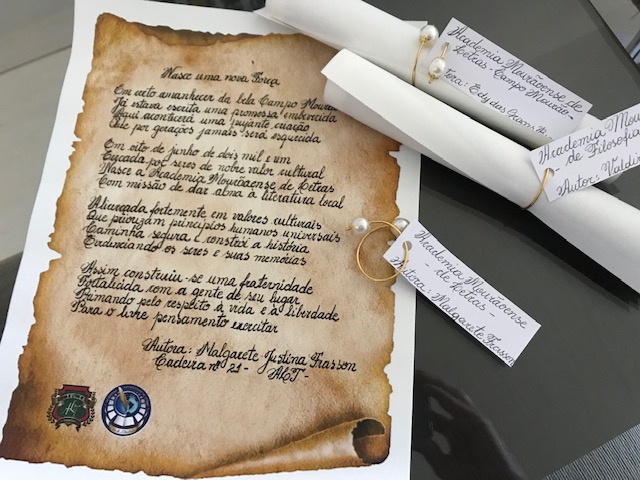 Nasce uma nova Força
Em certo amanhecer da bela Campo Mourão
Já estava escrita uma promessa enobrecida
Aqui aconteceria uma pujante criação
Que por gerações jamais será esquecida
Em oito de junho de dois mil e um
Forjada por seres de nobre valor cultural
Nasce a Academia Mourãoense de Letras
Com missão de dar alma à literatura local
Alicerçada fortemente em valores culturais
Que priorizam princípios humanos universais
Caminha segura e constrói a história
Evidenciando os seres e suas memórias
Assim construiu-se uma fraternidade
Fortalecida com a gente de seu lugar
Primando pelo respeito à vida e à liberdade
Para o livre pensamento exercitar
Autora: Malgarete Justina Frasson
Cadeira nº 21 -
Academia Mourãoense de
Letras - Campo Mourão -
Academia Mou
de Filosofia
Autor: Valdir
Academia Mourãoense
- de Letras -
Autora: Malgarete Frasson